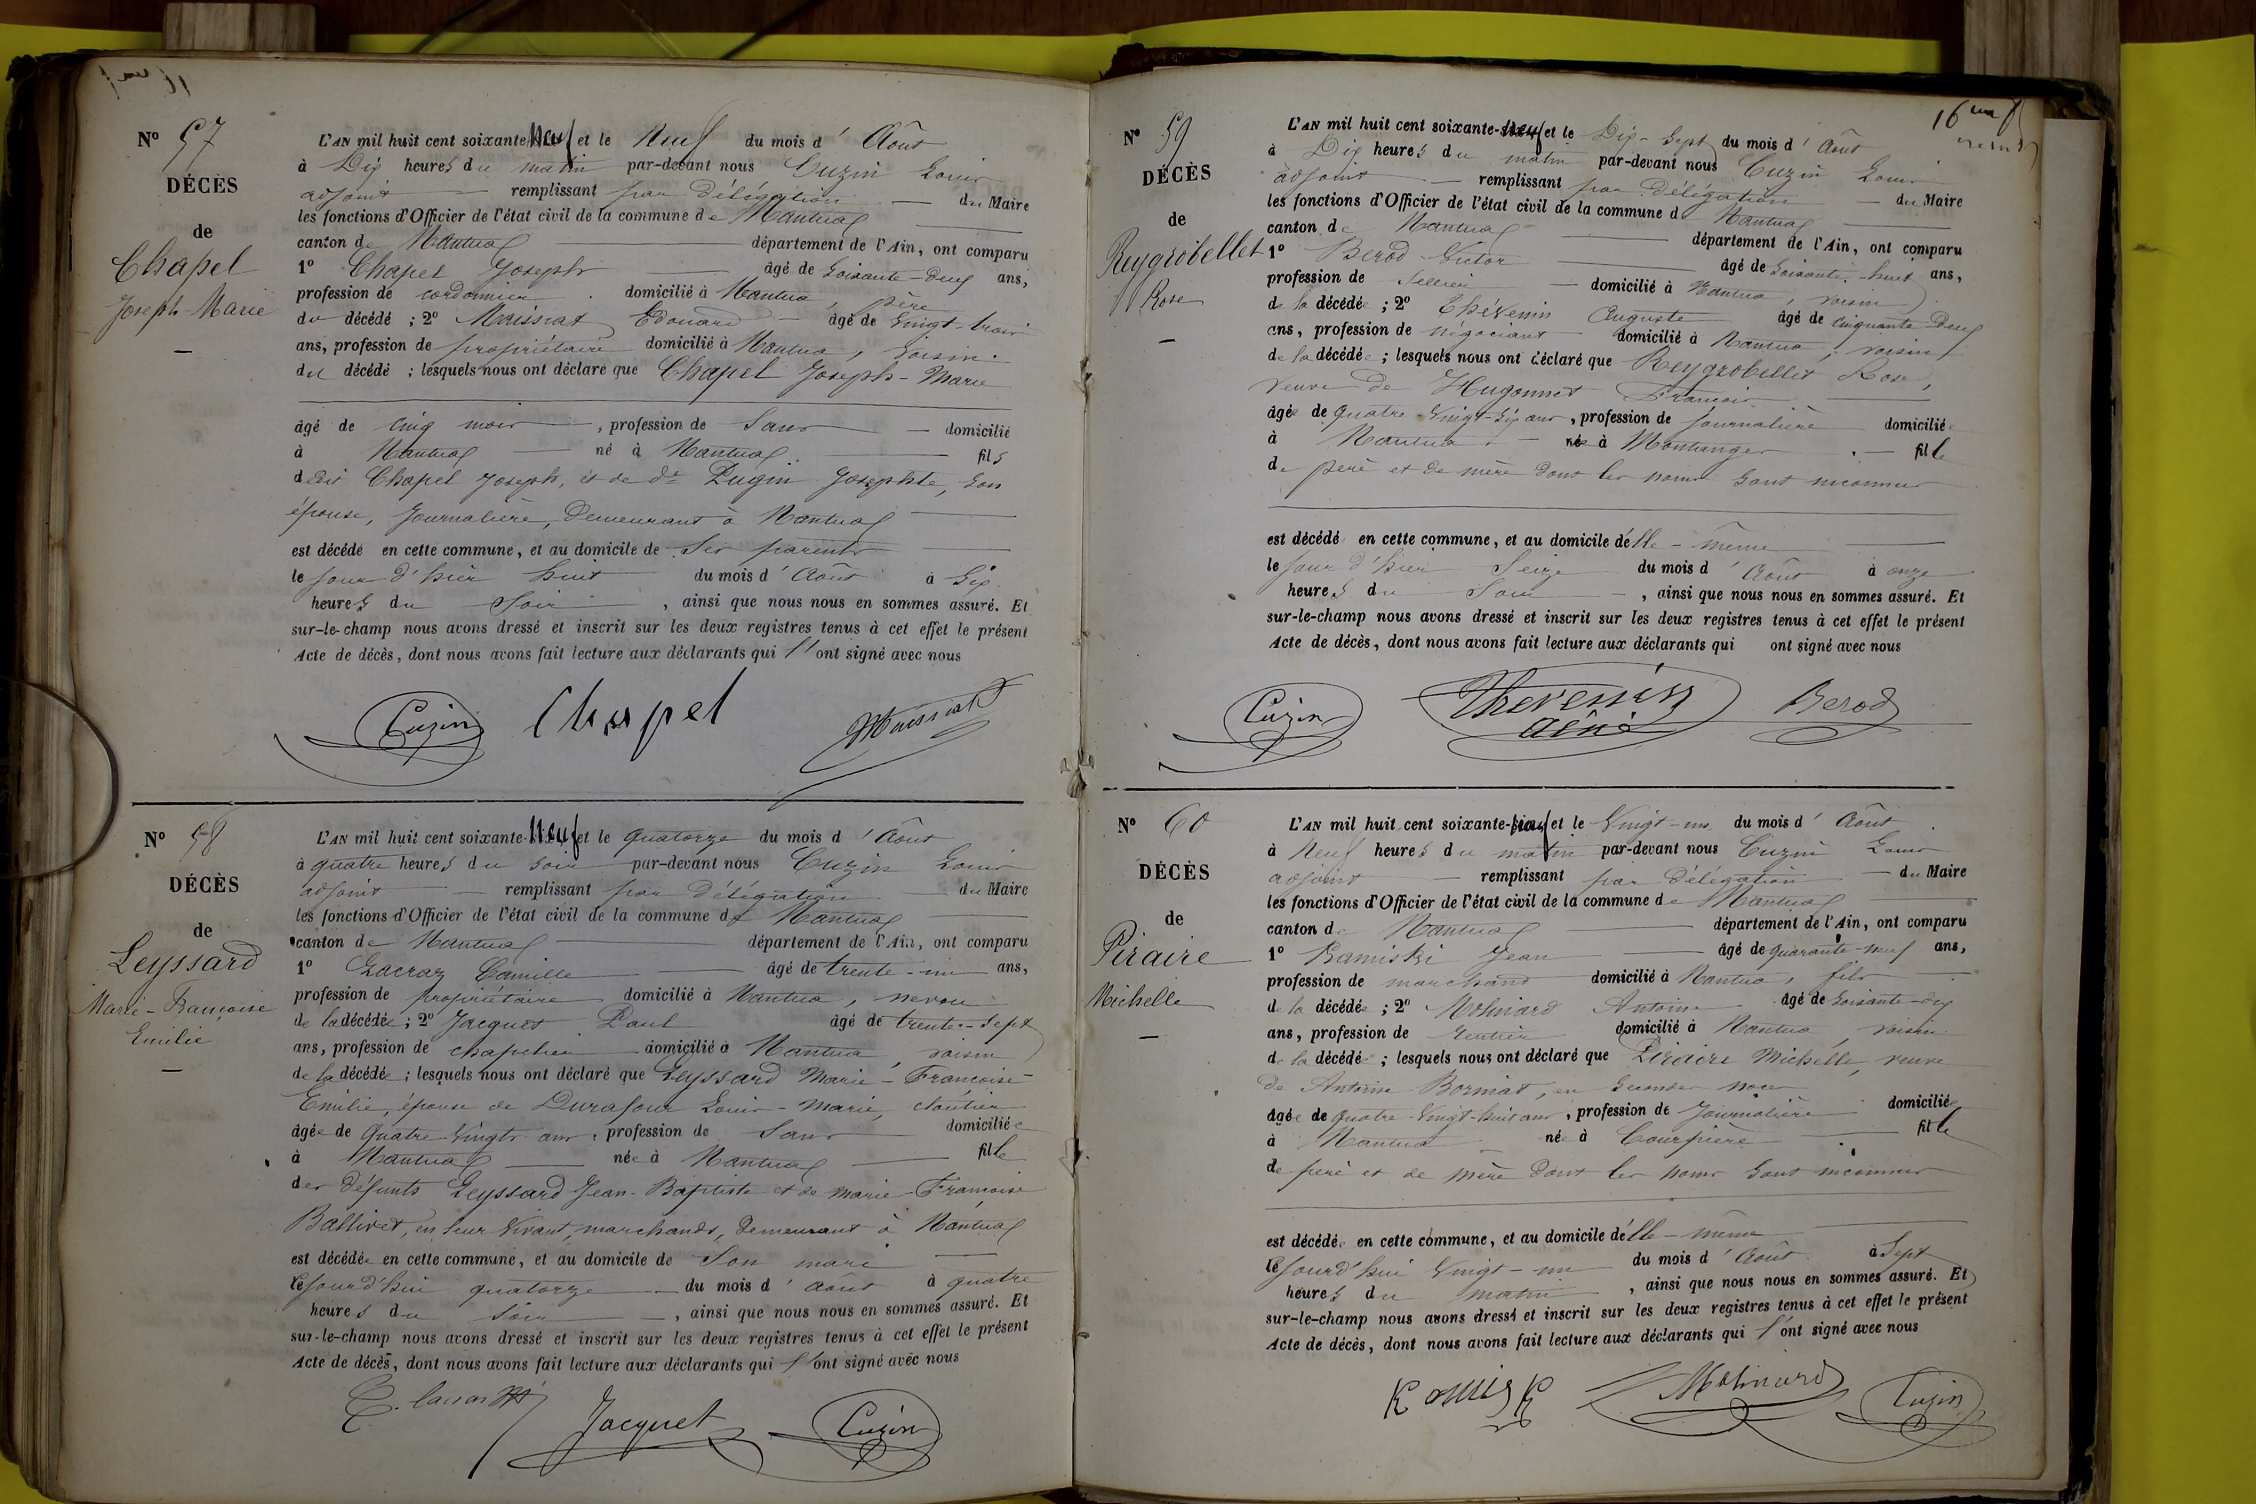 N° 57
DÉCÈS
de
Chapel
Joseph-Marie
L'AN mil huit cent soixante-neuf et le Neuf du mois d'Août
à Dix heures du matin par-devant nous Cuzin Louis
adjoint remplissant par Délégation du Maire
les fonctions d'Officier de l'état civil de la commune de Nantua
canton de Nantua département de l'Ain, ont comparu
1° Chapel Joseph âgé de soixante-deux ans,
profession de cordonnier domicilié à Nantua, père
du décédé ; 2° Maissiat Edouard âgé de vingt-trois
ans, profession de propriétaire domicilié à Nantua, voisin
du décédé ; lesquels nous ont déclaré que Chapel Joseph-Marie
âgé de cinq mois, profession de Sans domicilié
à Nantua né à Nantua fils
dedit Chapel Joseph, et de de Pugin Josephte, son
épouse, Journalière, demeurant à Nantua
est décédé en cette commune, et au domicile de ses parents
le jour d'hier huit du mois d'Août à six
heures du soir, ainsi que nous nous en sommes assuré. Et
sur-le-champ nous avons dressé et inscrit sur les deux registres tenus à cet effet le présent
Acte de décès, dont nous avons fait lecture aux déclarants qui l'ont signé avec nous
Cuzin Chapel Maissiat
N° 58
DÉCÈS
de
Leyssard
Marie-Françoise
Emilie
L'AN mil huit cent soixante-neuf et le quatorze du mois d'Août
à quatre heures du soir par-devant nous Cuzin Louis
adjoint remplissant par Délégation du Maire
les fonctions d'Officier de l'état civil de la commune de Nantua
canton de Nantua département de l'Ain, ont comparu
1° Lacraz Camille âgé de trente-un ans,
profession de propriétaire domicilié à Nantua, neveu
de la décédée ; 2° Jacquet Paul âgé de trente-sept
ans, profession de chapelier domicilié à Nantua, voisin
de la décédée ; lesquels nous ont déclaré que Leyssard Marie-Françoise
Emilie, épouse de Durafour Louis-Marie, cloutier
âgée de Quatre-vingts ans, profession de Sans domiciliée
à Nantua née à Nantua fille
des défunts Leyssard Jean-Baptiste et de Marie-Françoise
Ballivet, en leur vivant, marchands, demeurant à Nantua
est décédée en cette commune, et au domicile de son mari
cejourd'hui quatorze du mois d'août à quatre
heures du soir, ainsi que nous nous en sommes assuré. Et
sur-le-champ nous avons dressé et inscrit sur les deux registres tenus à cet effet le présent
Acte de décès, dont nous avons fait lecture aux déclarants qui l'ont signé avec nous
Jacquet Cuzin
16
N° 59
DÉCÈS
de
Reygrobellet
Rose
L'AN mil huit cent soixante-neuf et le Dix-Sept du mois d'Août
à Dix heures du matin par-devant nous Cuzin Louis
adjoint remplissant par Délégation du Maire
les fonctions d'Officier de l'état civil de la commune de Nantua
canton de Nantua département de l'Ain, ont comparu
1° Berod Victor âgé de soixante-huit ans,
profession de sellier domicilié à Nantua, voisin
de la décédée ; 2° Thévenin Auguste âgé de cinquante-deux
ans, profession de négociant domicilié à Nantua, voisin
de la décédée ; lesquels nous ont déclaré que Reygrobellet Rose,
veuve de Hugonnet François
âgée de quatre-vingt-six ans, profession de journalière domiciliée
à Nantua née à Montanges fille
de père et de mère dont les noms sont inconnus
est décédée en cette commune, et au domicile d'elle-même
le jour d'hier Seize du mois d'Août à onze
heures du soir, ainsi que nous nous en sommes assuré. Et
sur-le-champ nous avons dressé et inscrit sur les deux registres tenus à cet effet le présent
Acte de décès, dont nous avons fait lecture aux déclarants qui ont signé avec nous
Cuzin Thevenin aîné Berod
N° 60
DÉCÈS
de
Piraire
Michelle
L'AN mil huit cent soixante-neuf et le Vingt-un du mois d'Août
à Neuf heures du matin par-devant nous Cuzin Louis
adjoint remplissant par Délégation du Maire
les fonctions d'Officier de l'état civil de la commune de Nantua
canton de Nantua département de l'Ain, ont comparu
1° Kamiski Jean âgé de quarante-neuf ans,
profession de marchand domicilié à Nantua, fils
de la décédée ; 2° Molinard Antoine âgé de soixante-dix
ans, profession de rentier domicilié à Nantua, voisin
de la décédée ; lesquels nous ont déclaré que Piraire Michelle, veuve
de Antoine Borniat, en secondes noces
âgée de quatre-vingt-huit ans, profession de Journalière domiciliée
à Nantua née à Courpière fille
de père et de mère dont les noms sont inconnus
est décédée en cette commune, et au domicile d'elle-même
cejourd'hui Vingt-un du mois d'Août à sept
heures du matin, ainsi que nous nous en sommes assuré. Et
sur-le-champ nous avons dressé et inscrit sur les deux registres tenus à cet effet le présent
Acte de décès, dont nous avons fait lecture aux déclarants qui l'ont signé avec nous
Molinard Cuzin